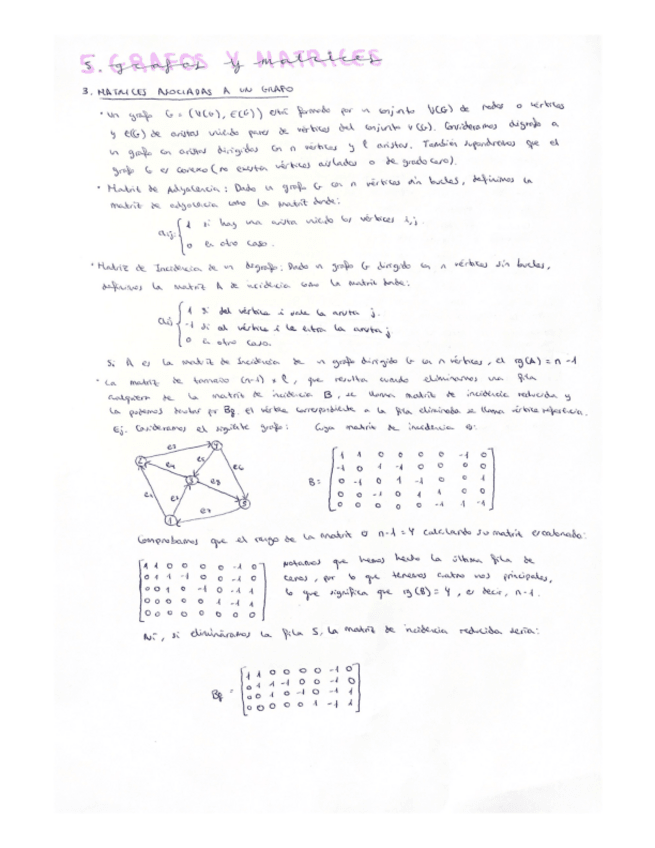 5. GRAFOS Y MATRICES
5. grafos y matrices
3. MATRICES ASOCIADAS A UN GRAFO
• Un grafo G = (V(G), E(G)) está formado por un conjunto V(G) de nodos o vértices
y E(G) de aristas uniendo pares de vértices del conjunto V(G). Consideramos digrafo a
un grafo con aristas dirigidas con n vértices y l aristas. También supondremos que el
grafo G es conexo (no existen vértices aislados o de grado cero).
• Matriz de Adyacencia: Dado un grafo G con n vértices sin bucles, definimos la
matriz de adyacencia como la matriz donde:
aij = { 1 si hay una arista uniendo los vértices i, j.
0 en otro caso.
• Matriz de Incidencia de un digrafo: Dado un grafo G dirigido con n vértices sin bucles,
definimos la matriz A de incidencia como la matriz donde:
aij { 1 si del vértice i sale la arista j.
-1 si al vértice i le entra la arista j
0 en otro caso.
Si A es la matriz de Incidencia de un grafo dirigido G con n vértices, el rg(A) = n - 1
• La matriz de tamaño (n-1) x l, que resulta cuando eliminamos una fila
cualquiera de la matriz de incidencia B, se llama matriz de incidencia reducida y
la podemos denotar por Bf. El vértice correspondiente a la fila eliminada se llama vértice referencia.
Ej. Consideremos el siguiente grafo: Cuya matriz de incidencia es:
e3
2 4
e4 e5 e6
3 e8
e1 e2 5
e7
1
B =
1 1 0 0 0 0 -1 0
-1 0 1 -1 0 0 0 0
0 -1 0 1 -1 0 0 1
0 0 -1 0 1 1 0 0
0 0 0 0 0 -1 1 -1
Comprobamos que el rango de la matriz es n-1 = 4 calculando su matriz escalonada:
1 1 0 0 0 0 -1 0
0 1 1 -1 0 0 -1 0
0 0 1 0 -1 0 -1 1
0 0 0 0 0 1 -1 1
0 0 0 0 0 0 0 0
Notamos que hemos hecho la última fila de
ceros, por lo que tenemos cuatro filas principales,
lo que significa que rg(B) = 4, es decir, n-1.
Así, si elimináramos la fila 5, la matriz de incidencia reducida sería:
Bf =
1 1 0 0 0 0 -1 0
0 1 1 -1 0 0 -1 0
0 0 1 0 -1 0 -1 1
0 0 0 0 0 1 -1 1